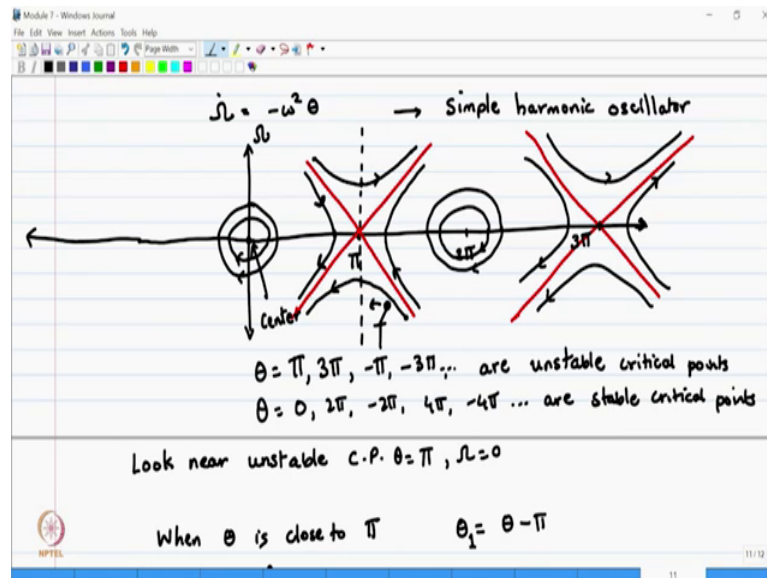 Module 7 - Windows Journal
File Edit View Insert Actions Tools Help
Page Width
B I
Ω̇ = -ω² θ → Simple harmonic oscillator
Ω
π 2π 3π
Center
θ = π, 3π, -π, -3π... are unstable critical points
θ = 0, 2π, -2π, 4π, -4π ... are stable critical points
Look near unstable C.P. θ = π, Ω = 0
When θ is close to π θ₁ = θ - π
NPTEL
11/12
11